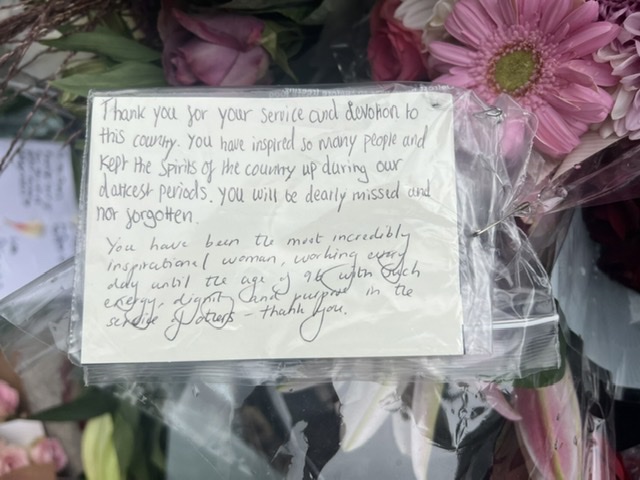 Thank you for your service and devotion to
this country. You have inspired so many people and
kept the spirits of the country up during our
darkest periods. You will be dearly missed and
nor forgotten.
You have been the most incredibly
inspirational woman, working every
day until the age of 96 with such
energy, dignity and purpose in the
service of others - thank you.